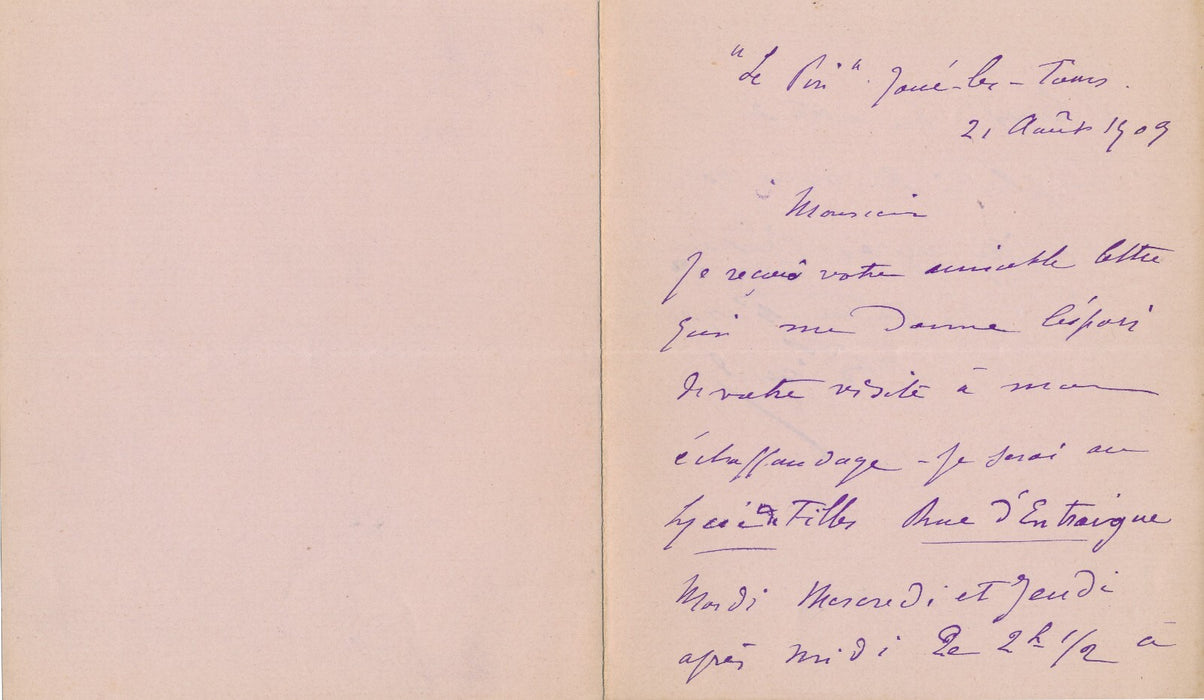 "Le Pin". Joué-les-Tours.
21 Août 1909
Monsieur
Je reçois votre aimable lettre
qui me donne l'éspoir
de votre visite à mon
échaffaudage - je serai au
Lycée de Filles Rue d'Entraigue
Mardi Mercredi et Jeudi
après midi De 2h 1/2 à